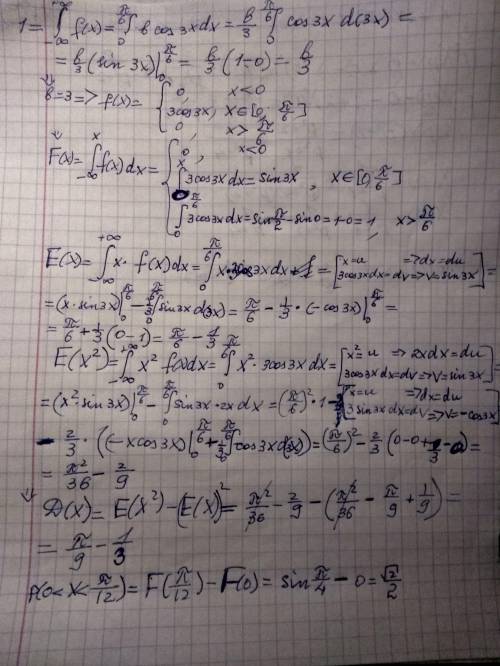 1 = ∫_{-∞}^{+∞} f(x) = ∫_0^{π/6} b cos3x dx = b/3 ∫_0^{π/6} cos3x d(3x) =
= b/3 (sin 3x)|_0^{π/6} = b/3 (1-0) = b/3
⇓
b=3 => f(x) = { 0, x<0
3cos3x, x∈[0, π/6]
0, x> π/6
↓
F(x) = ∫_{-∞}^{x} f(x) dx = { 0, x<0
∫_0^x 3cos3x dx = sin3x, x∈[0, π/6]
∫_0^{π/6} 3cos3x dx = sin π/2 - sin0 = 1-0 = 1, x> π/6
E(x) = ∫_{-∞}^{+∞} x· f(x) dx = ∫_0^{π/6} x·3cos3x dx = [x=u => dx=du
3cos3x dx=dv => v=sin3x] =
= (x·sin3x)|_0^{π/6} - 1/3 ∫_0^{π/6} sin3x d(3x) = π/6 - 1/3 · (-cos3x)|_0^{π/6} =
= π/6 + 1/3 (0-1) = π/6 - 1/3
E(x²) = ∫_{-∞}^{+∞} x² f(x) dx = ∫_0^{π/6} x² · 3cos3x dx = [x²=u => 2x dx=du
3cos3x dx=dv => v=sin3x] =
= (x² sin3x)|_0^{π/6} - ∫_0^{π/6} sin3x · 2x dx = (π/6)² · 1 - [x=u => dx=du
3sin3x dx=dv => v=-cos3x]
- 2/3 · ((-x cos3x)|_0^{π/6} + 1/3 ∫_0^{π/6} cos3x d(3x)) = (π/6)² - 2/3 (0-0+1/3-0) =
= π²/36 - 2/9
⇓
D(x) = E(x²) - (E(x))² = π²/36 - 2/9 - (π²/36 - π/9 + 1/9) =
= π/9 - 1/3
P(0<X<π/12) = F(π/12) - F(0) = sin π/4 - 0 = √2/2